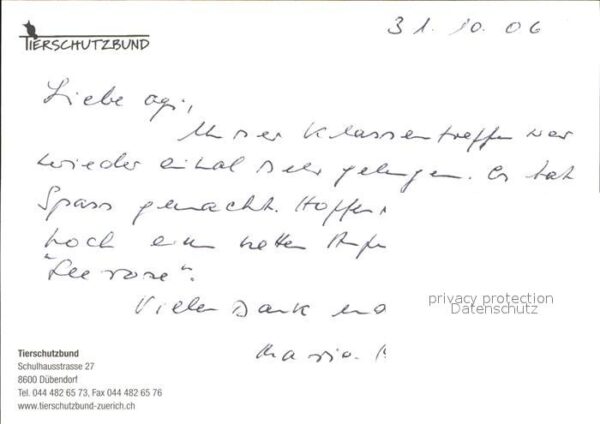 TIERSCHUTZBUND
31. 10. 06
Liebe Agi,
Unser Klassentreffen war
wieder einmal sehr gelungen. Es hat
Spass gemacht. Hoffen,
noch ein netten
"Seerose".
Vielen Dank und
privacy protection
Datenschutz
Mario.
Tierschutzbund
Schulhausstrasse 27
8600 Dübendorf
Tel. 044 482 65 73, Fax 044 482 65 76
www.tierschutzbund-zuerich.ch